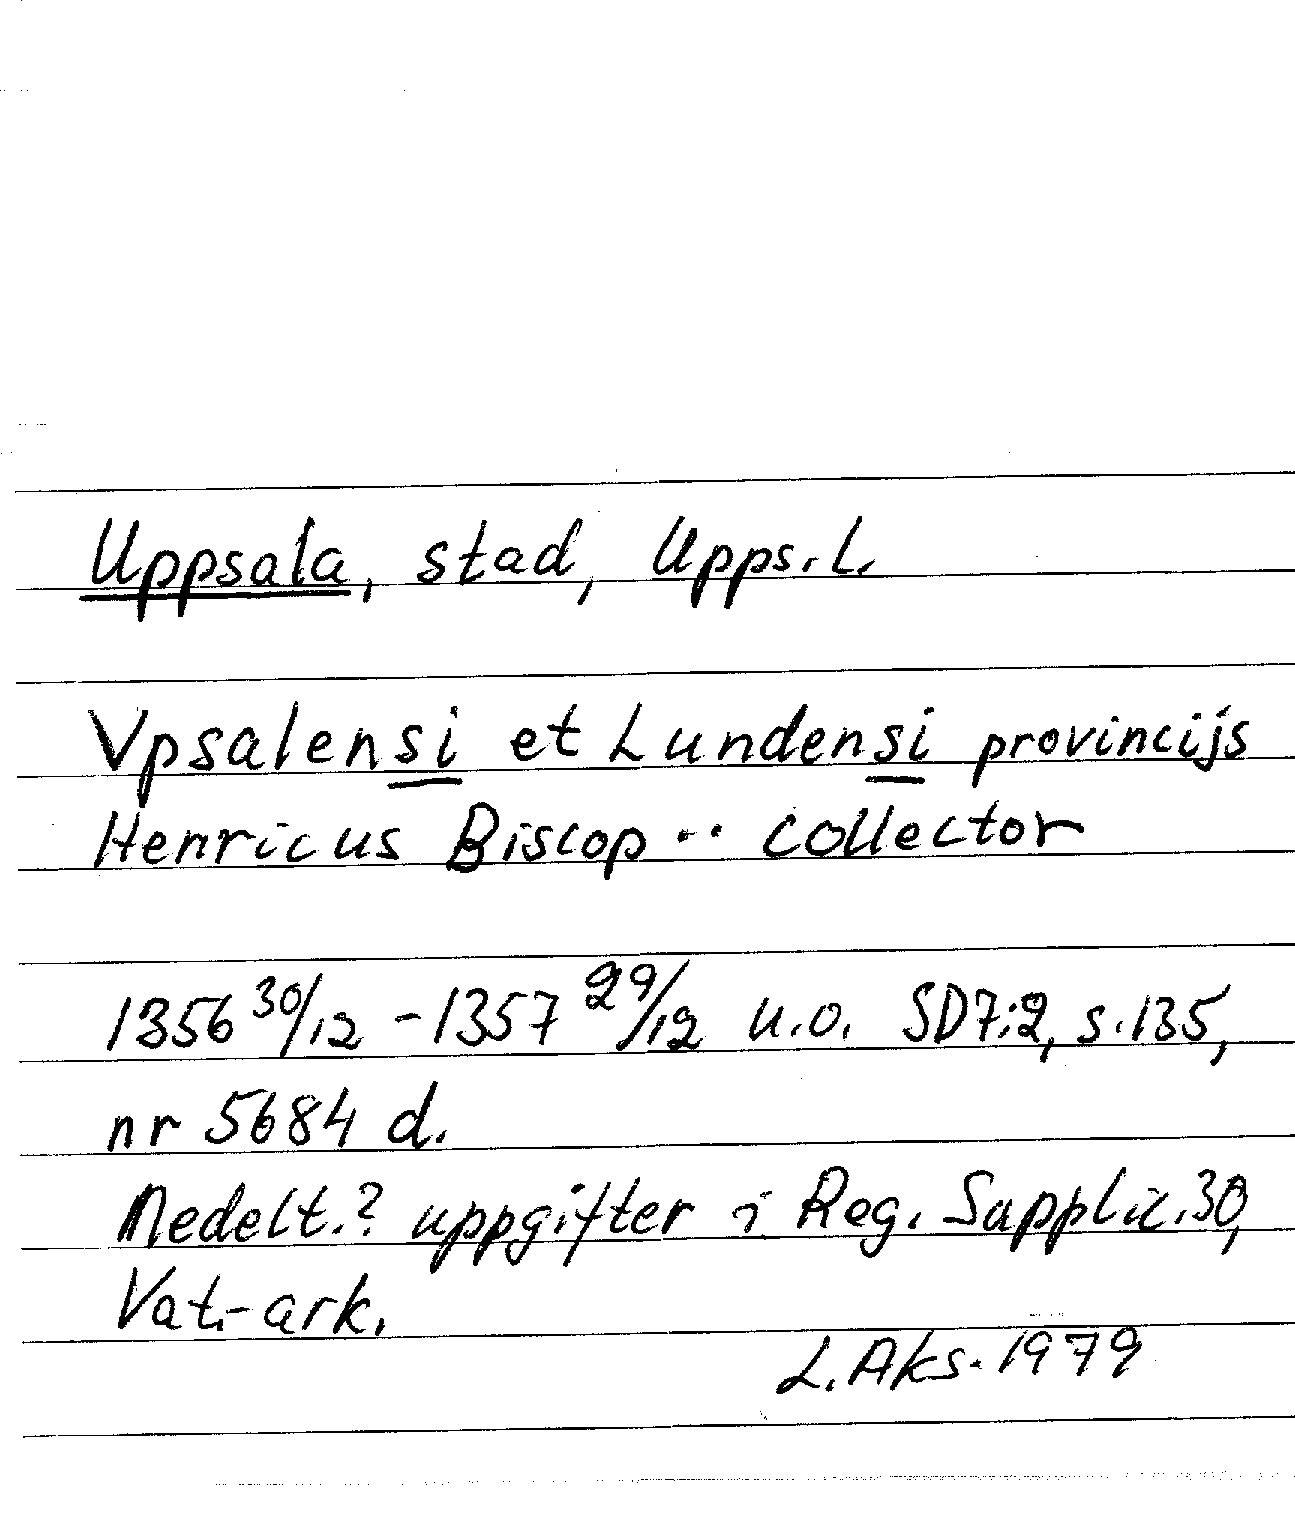 Uppsala, stad, Upps.L.
Vpsalensi et Lundensi provincijs
Henricus Biscop .. collector
1356 30/12 - 1357 29/12 u.o. SD7:2, s.135,
nr 5684 d.
Medelt.? uppgifter i Reg. Supplic. 30,
Vat.-ark.
L.Aks. 1979